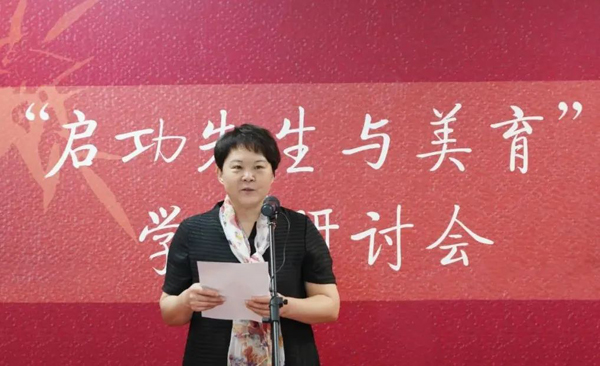 “启功先生与美育”
学 研讨会